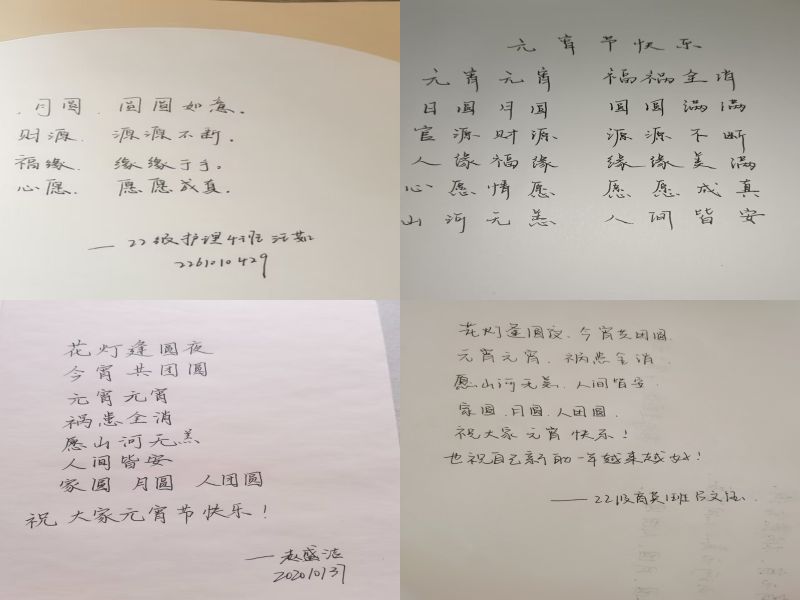 月圆 圆圆如意.
财源. 源源不断.
福缘. 缘缘于手。
心愿. 愿愿成真.
— 22级护理4班 汪茹
2261010429
元宵节快乐
元宵元宵 福祸全消
日圆月圆 圆圆满满
官源财源 源源不断
人缘福缘 缘缘美满
心愿情愿 愿愿成真
山河无恙 人间皆安
花灯逢圆夜
今宵共团圆
元宵元宵
祸患全消
愿山河无恙
人间皆安
家圆 月圆 人团圆
祝大家元宵节快乐!
— 赵盛洁
花灯逢圆夜、今宵共团圆.
元宵元宵、祸患全消.
愿山河无恙、人间皆安.
家圆、月圆、人团圆.
祝大家元宵快乐!
也祝自己新的一年越来越好!
—— 22级商英1班吕文